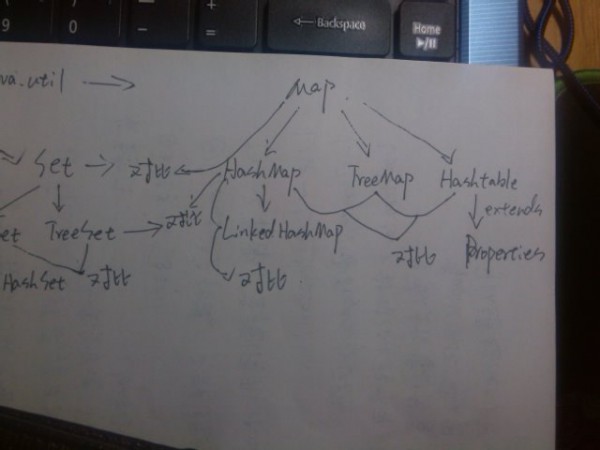 9 0 - + =
← Backspace
Home
va.util → Map
Set → 对比 HashMap TreeMap Hashtable
对比 extends
et TreeSet → LinkedHashMap
对比 Properties
HashSet 对比 对比